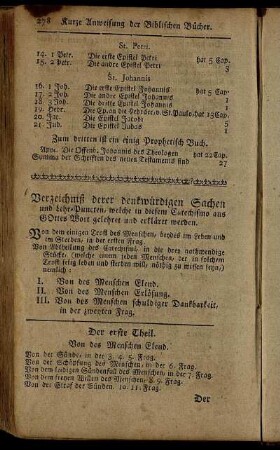 278 Kurze Anweisung der Biblischen Bücher.
St. Petri.
14. 1 Petr. Die erste Epistel Petri hat 5 Cap.
15. 2 Petr. Die andre Epistel Petri 3
St. Johannis
16. 1 Joh. Die erste Epistel Johannis hat 5 Cap.
17. 2 Joh. Die andre Epistel Johannis 1
18. 3 Joh. Die dritte Epistel Johannis 1
19. Hebr. Die Ep. an die Hebräer, v. St. Paulo, hat 13 Cap.
20. Jac. Die Epistel Jacobi 5
21. Jud. Die Epistel Judas 1
Zum dritten ist ein einig Prophetisch Buch.
Apoc. Die Offenb. Johannis des Theologen hat 22 Cap.
Summa der Schriften des neuen Testaments sind 27
Verzeichniß derer denkwürdigen Sachen
und Lehr-Puncten, welche in diesem Catechismo aus
Gottes Wort gelehret und erkläret werden.
Von dem einigen Trost des Menschen, beydes im Leben und
im Sterben, in der ersten Frag.
Von Abtheilung des Catechismi, in die drey nothwendige
Stücke, (welche einem jeden Menschen, der in solchem
Trost selig leben und sterben will, nöthig zu wissen seyn,)
nemlich:
I. Von des Menschen Elend.
II. Von des Menschen Erlösung.
III. Von des Menschen schuldiger Dankbarkeit,
in der zweyten Frag.
Der erste Theil.
Von des Menschen Elend.
Von der Sünde, in der 3. 4. 5. Frag.
Von der Schöpfung des Menschen, in der 6. Frag.
Von dem leidigen Sündenfall des Menschen, in der 7. Frag.
Von dem freyen Willen des Menschen, 8. 9. Frag.
Von der Straf der Sünden 10. 11. Frag.
Der